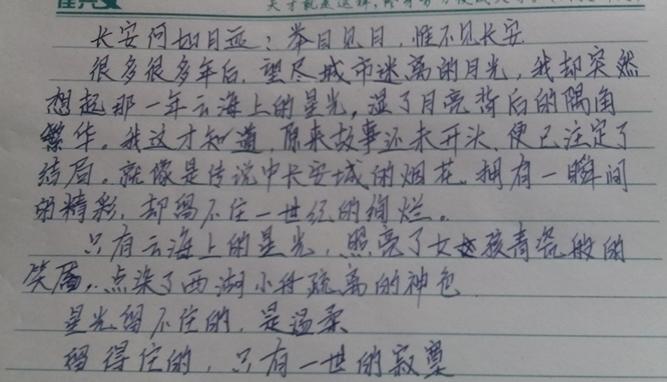 天才就是这样,
长安何如日远?举目见日,惟不见长安
很多很多年后,望尽城市迷离的月光,我却突然
想起那一年云海上的星光,湿了月亮背后的隅角
繁华。我这才知道,原来故事还未开头,便已注定了
结局。就像是传说中长安城的烟花。拥有一瞬间
的精彩,却留不住一世纪的绚烂。
只有云海上的星光,照亮了女孩青瓷般的
笑眉,点染了西湖小舟疏离的神色
星光留不住的,是温柔
留得住的,只有一世的寂寞